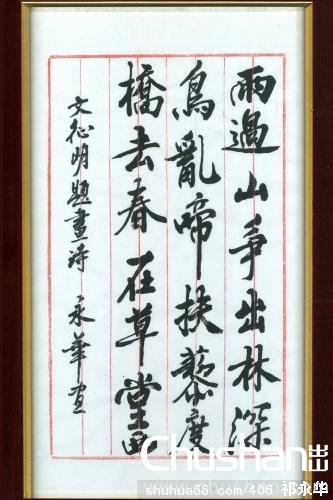 雨過山爭出林深
鳥亂啼扶藜度
橋去春在草堂西
文征明題畫詩 永華書
Chushan出
shuhua66.com 406 祁永华